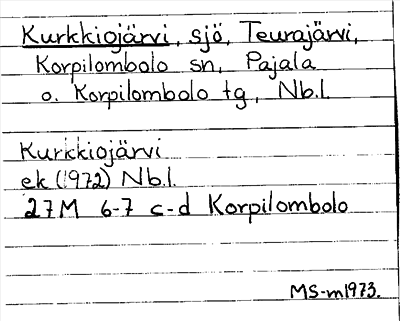 Kurkkiojärvi, sjö, Teurajärvi,
Korpilombolo sn, Pajala
o. Korpilombolo tg, Nb.l.
Kurkkiojärvi
ek (1972) Nb.l.
27M 6-7 c-d Korpilombolo
MS-m1973.